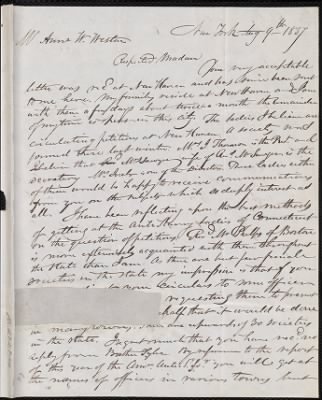 New York Aug 9th 1837
Mrs Anne W. Weston
Respected Madam
Your very acceptable
letter was rec'd at New Haven and has since been sent
to me here. My family reside at New Haven and I am
with them a few days about twice a month the remainder
of my time is spent in this city. The ladies I believe are
circulating petitions at New Haven. A society was
formed there last winter. Mrs J. Thomson is the Pres. and
I believe that Mrs
Secretary Mrs one of the Directors
of them would be happy to receive communications
from you on the subject which so deeply interest us
all. I have been reflecting upon the best methods
of getting at the Anti Slavery ladies of Connecticut
on the question of petitions. Rev Mr Phelps of Boston
is more extensively acquainted with them throughout
the State than I am. As there are but few female
societies in the State my impression is that if you
circulars to some officer
requesting them to
half that it would be done
in many towns. There are upwards of 30 societies
in the State. I regret much that you have rec'd no
reply from By reference to the report
of this year of the Amn. Anti S. Soc. you will get at
the names of officers in various towns but